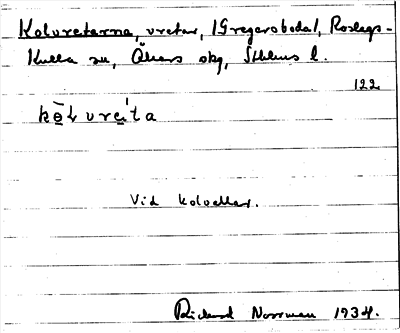 Kolvretarna, vretar, (Gregersboda), Roslags-
Kulla sn, Åkers skg, Sthlms l.
122
kō̤ɫ vre̤í̵ta
Vid kolvallar.
Rickard Norrman 1934.